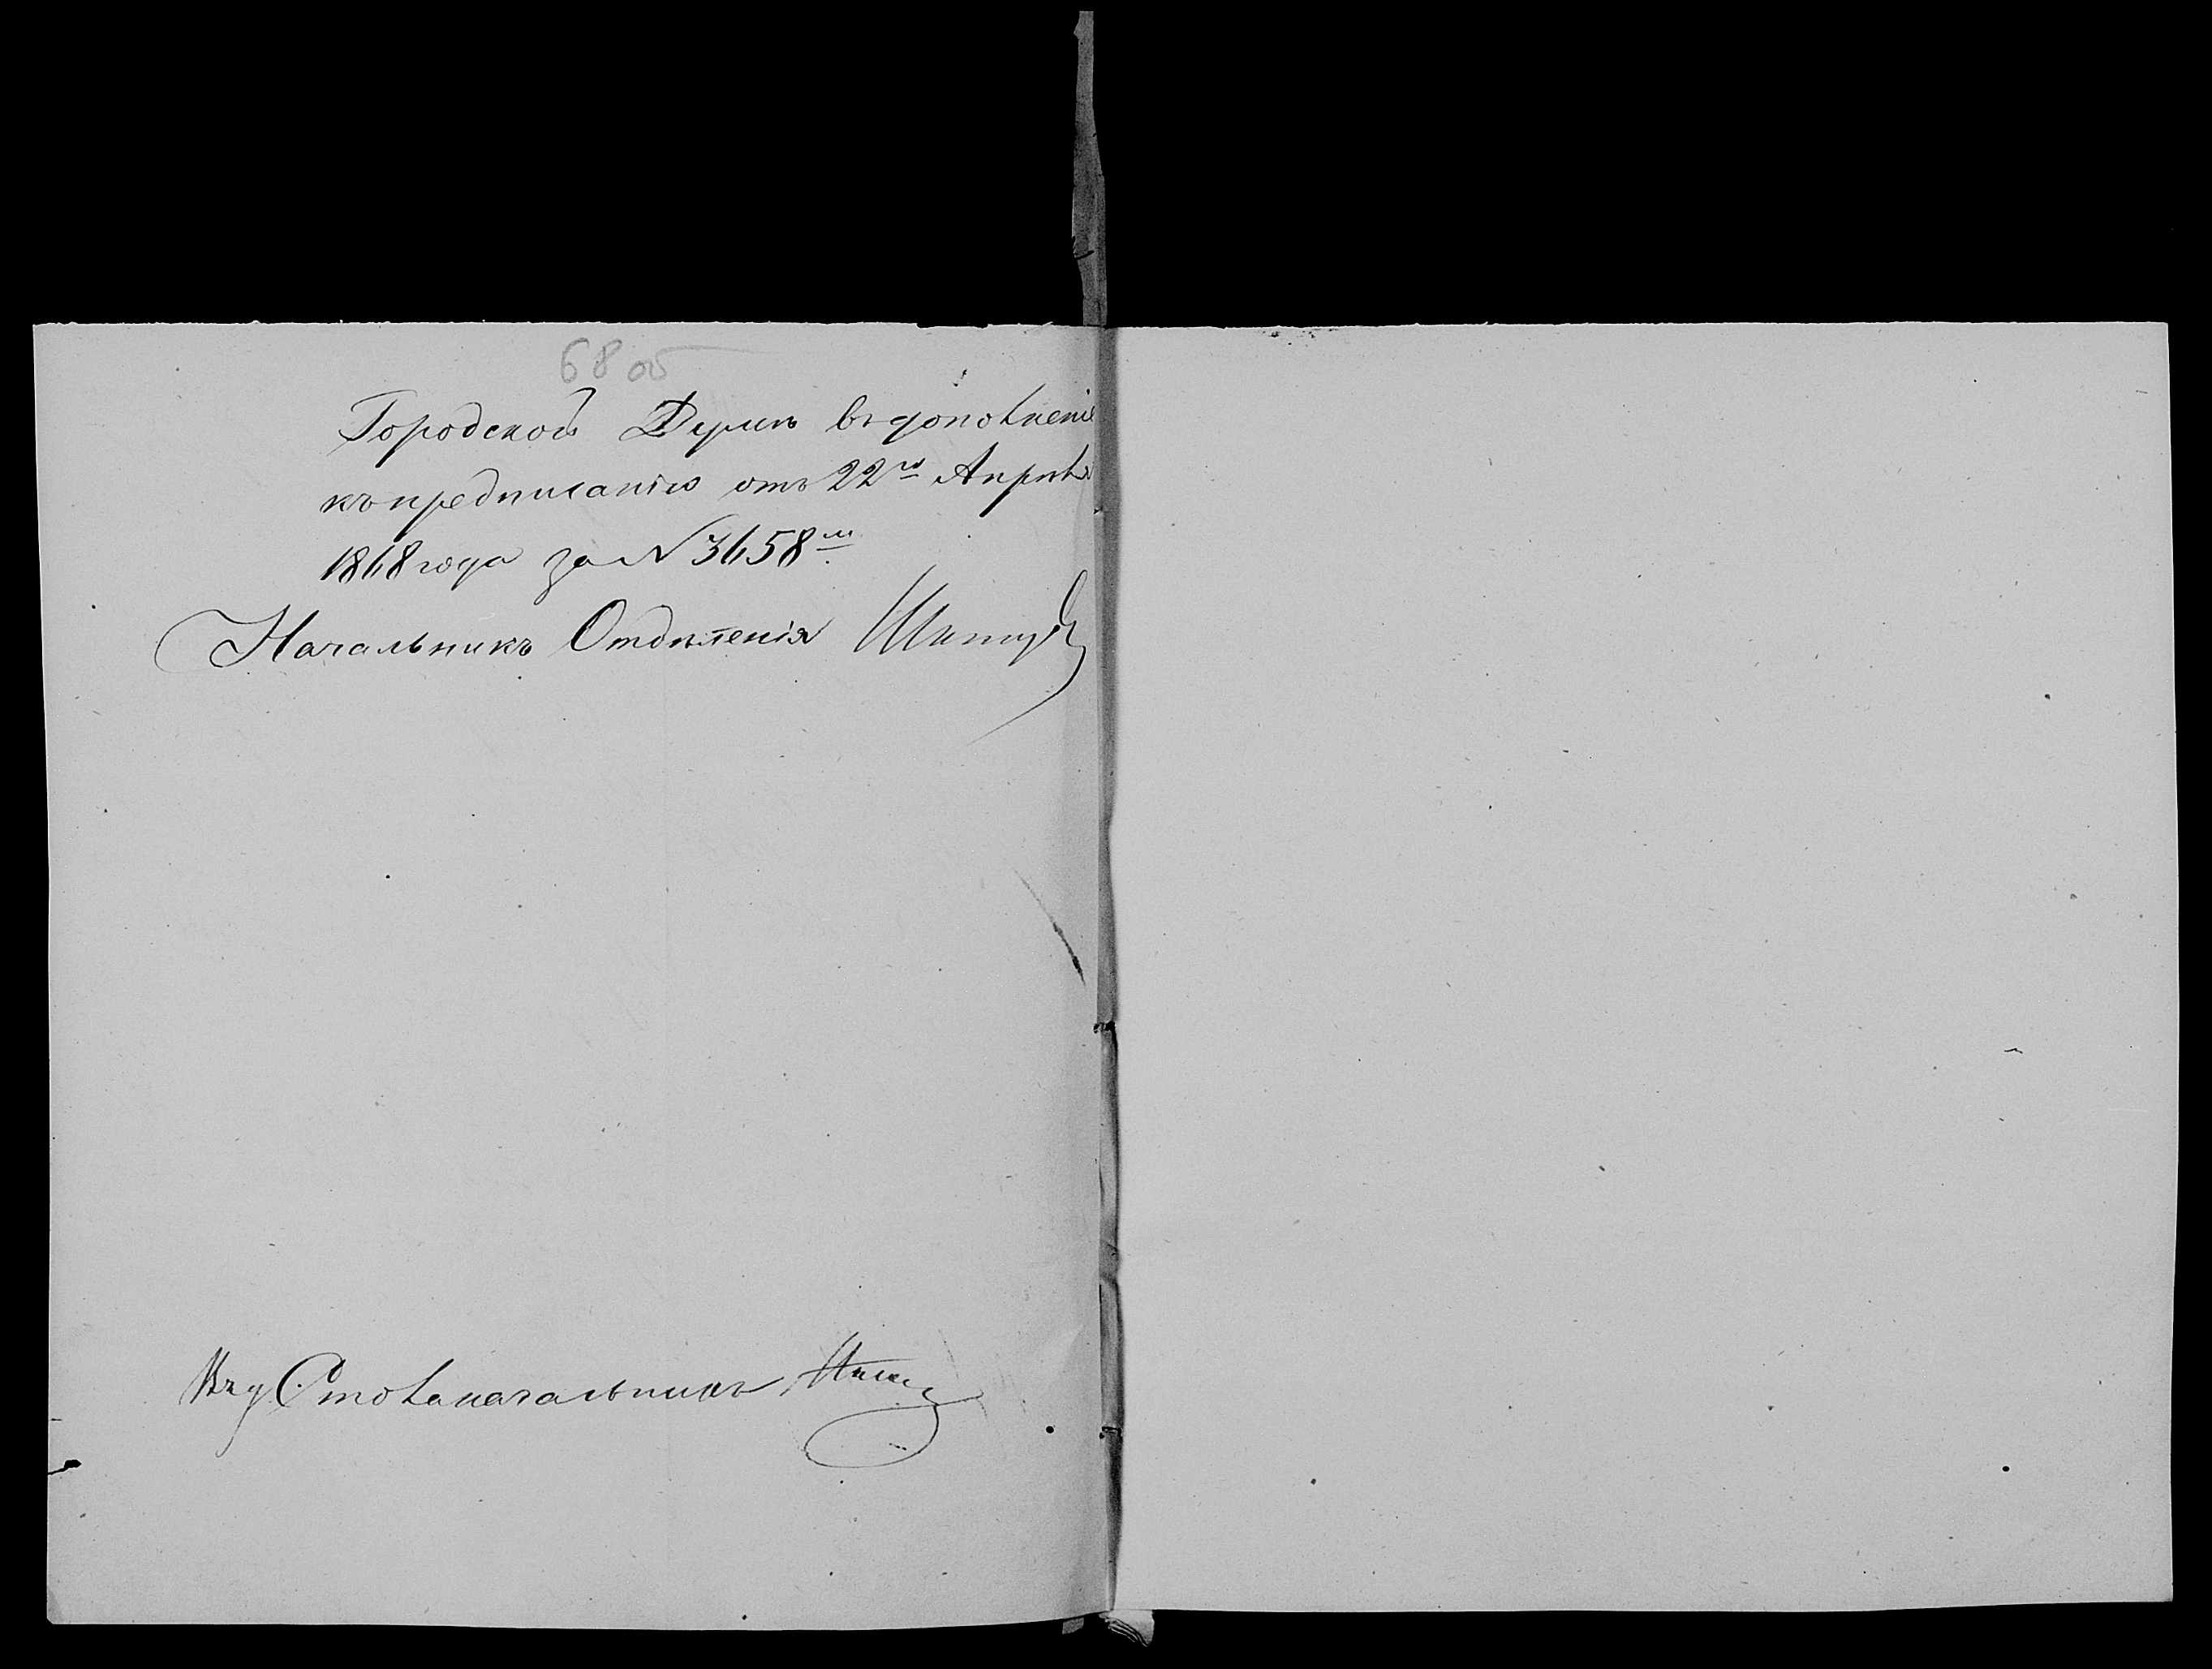 68 об
Городской Думѣ въ дополненіе
къ предписанію отъ 22го Апрѣля
1868 года за № 3658м
Начальникъ Отдѣленія
Столоначальникъ